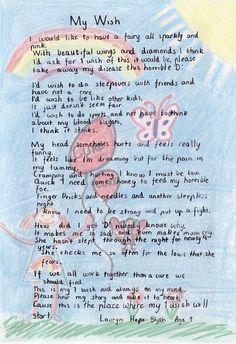 My Wish
I would like to have a fairy all sparkly and
pink.
With beautiful wings and diamonds I think.
I'd ask for 1 wish if this it would be, please
take away my disease this horrible D.
I'd wish to do sleepovers with friends and
have not a care.
I'd wish to be like other kids,
It just doesn't seem fair.
I'd wish to do sports and not have to think
about my blood sugar.
I think it stinks.
My head sometimes hurts and feels really
funny.
It feels like I'm dreaming but for the pain in
my tummy.
Cramping and hurting I know I must be low
Quick I need some honey to feed my horrible
foe.
Finger Pricks and needles and another sleepless
night
I know I need to be strong and put up a fight.
How did I get 'D' nobody knows why
It makes me so sad and Mum makes mum cry.
She hasn't slept through the night for nearly 4
years.
She checks me so often for the lows that she
fears.
If we all work together than a cure we
should find.
This is my 1 wish and always on my mind.
Please hear my story and take it to heart,
Cause this is the place where my 1 wish will
Start.
Lauryn Hope-Blyth Age 9